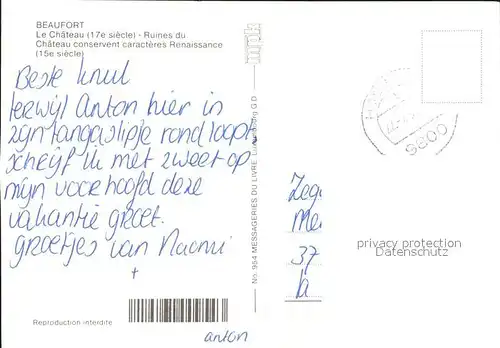 BEAUFORT
Le Château (17e siècle) - Ruines du
Château conservent caractères Renaissance
(15e siècle)
Beste knul
terwijl Anton hier in
zijn tangaslipje rond loopt
schrijf ik met zweet op
mijn voorhoofd deze
vakantie groet.
groetjes van Naomi
+
anton
Reproduction interdite
No. 954 MESSAGERIES DU LIVRE
9800
Zeg.
Me
37
privacy protection
Datenschutz